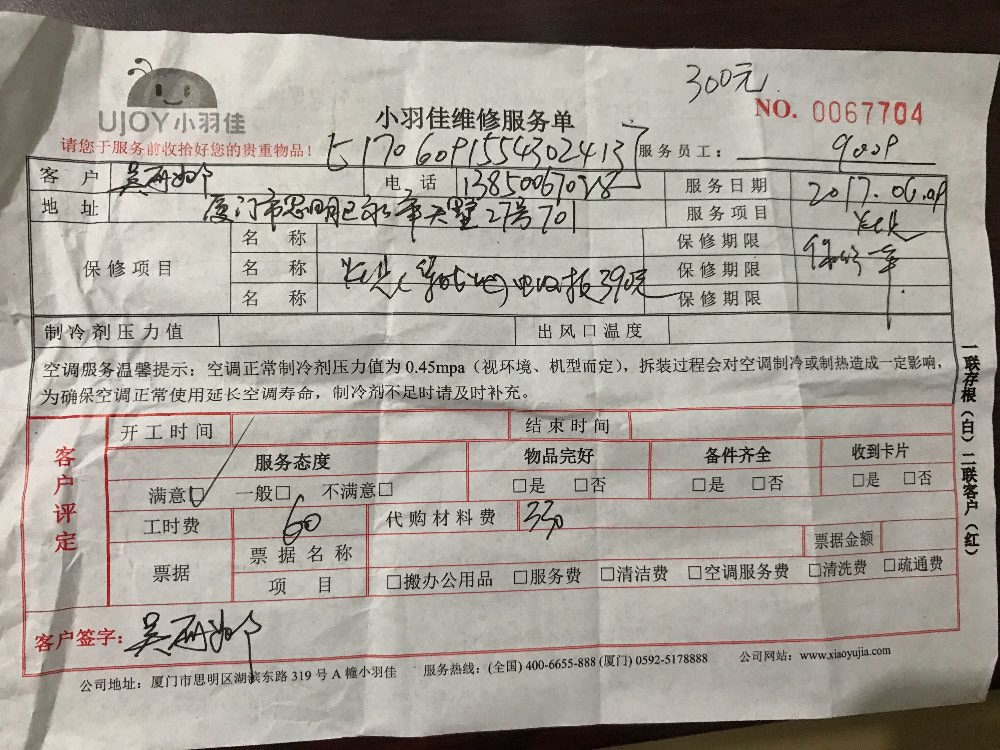 300元
UJOY小羽佳
小羽佳维修服务单
NO. 0067704
请您于服务前收拾好您的贵重物品！
17060915544302413
服务员工：
客 户 吴 电 话 服务日期 2017.06.09
地 址 厦门市思明区 27号701 服务项目
名 称 保修期限
保修项目 名 称 390元 保修期限
名 称 保修期限
制冷剂压力值 出风口温度
空调服务温馨提示：空调正常制冷剂压力值为 0.45mpa（视环境、机型而定），拆装过程会对空调制冷或制热造成一定影响，
为确保空调正常使用延长空调寿命，制冷剂不足时请及时补充。
客户评定
开工时间 结束时间
服务态度 物品完好 备件齐全 收到卡片
满意□ 一般□ 不满意□ □是 □否 □是 □否 □是 □否
工时费 60 代购材料费 330
票据 票据名称 票据金额
项 目 □搬办公用品 □服务费 □清洁费 □空调服务费 □清洗费 □疏通费
客户签字： 吴
公司地址：厦门市思明区湖滨东路 319 号 A 幢小羽佳 服务热线：(全国) 400-6655-888 (厦门) 0592-5178888 公司网站：www.xiaoyujia.com
一联存根（白）二联客户（红）